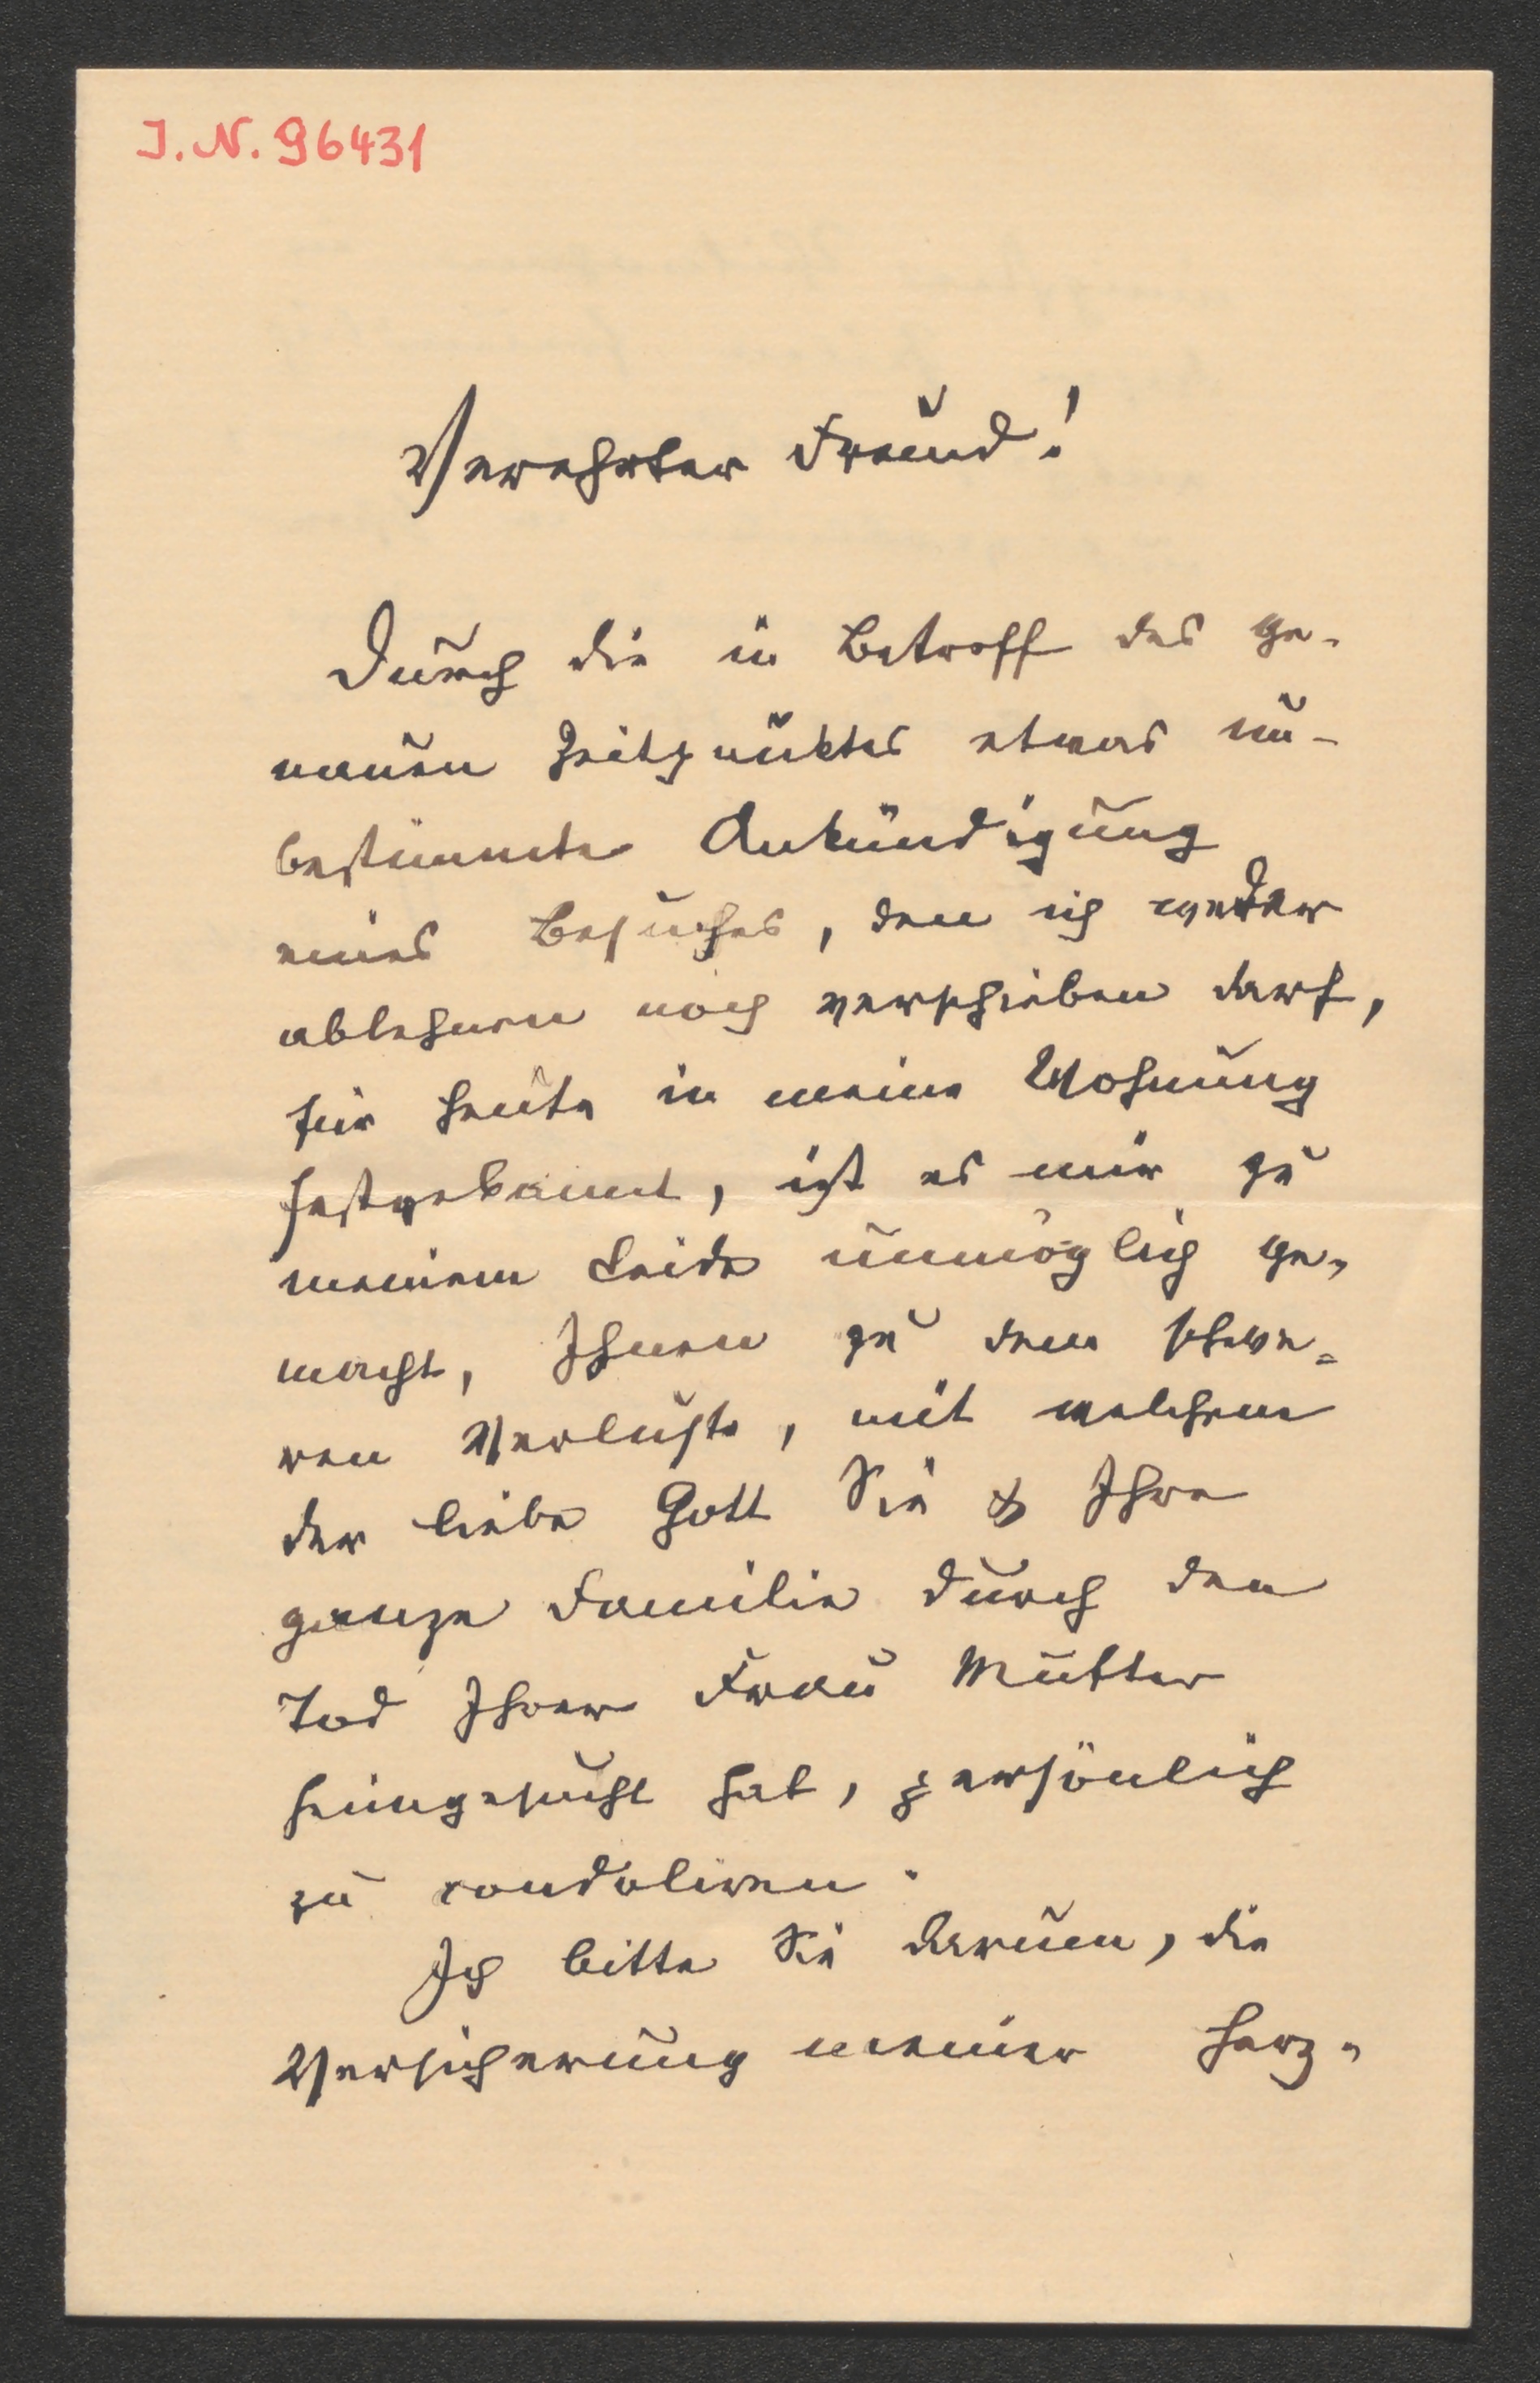 I.N. 96431
Verehrter Freund!
Durch die in Betreff des ge-
nauen Zeitpunktes etwas un-
bestimmte Ankündigung
eines Besuches, den ich weder
ablehnen noch verschieben darf,
für heute in meine Wohnung
festgebannt, ist es mir zu
meinem Leide unmöglich ge-
macht, Ihnen zu dem schwe-
ren Verluste, mit welchem
der liebe Gott Sie & Ihre
ganze Familie durch den
Tod Ihrer Frau Mutter
heimgesucht hat, persönlich
zu condoliren.
Ich bitte Sie darum, die
Versicherung meiner herz-